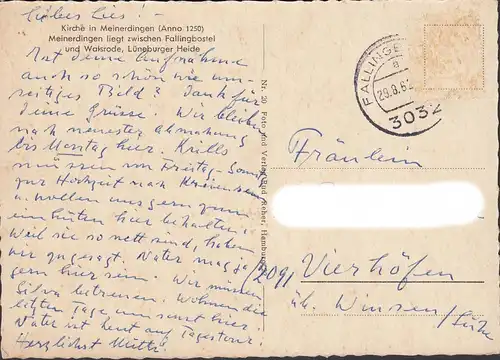 Liebes Lies!
Kirche in Meinerdingen (Anno 1250)
Meinerdingen liegt zwischen Fallingbostel
und Walsrode, Lüneburger Heide
Hat deine Aufnahme
auch so schön wie um-
seitiges Bild? Dank für
deine Grüsse. Wir bleiben
nach neuester abmachung
bis Montag hier. Krills
müssen von Freitag-Sonnt.
zur Hochzeit nach
u. wollen uns gern zum
einhüten hier behalten.
Weil sie so nett sind, haben
wir zugesagt. Vater mag ja
gern hier sein. Wir müssen
Silva betreuen. Wohnen die
letzten Tage, um sonst hier
Vater ist heut auf Tagestour.
Herzlichst Mutti
Nr. 20 Foto und Verlag Hamburg
FALLINGB
a
29.8.6
3032
Fräulein
2091 Vierhöfen
üb. Winsen/Luhe